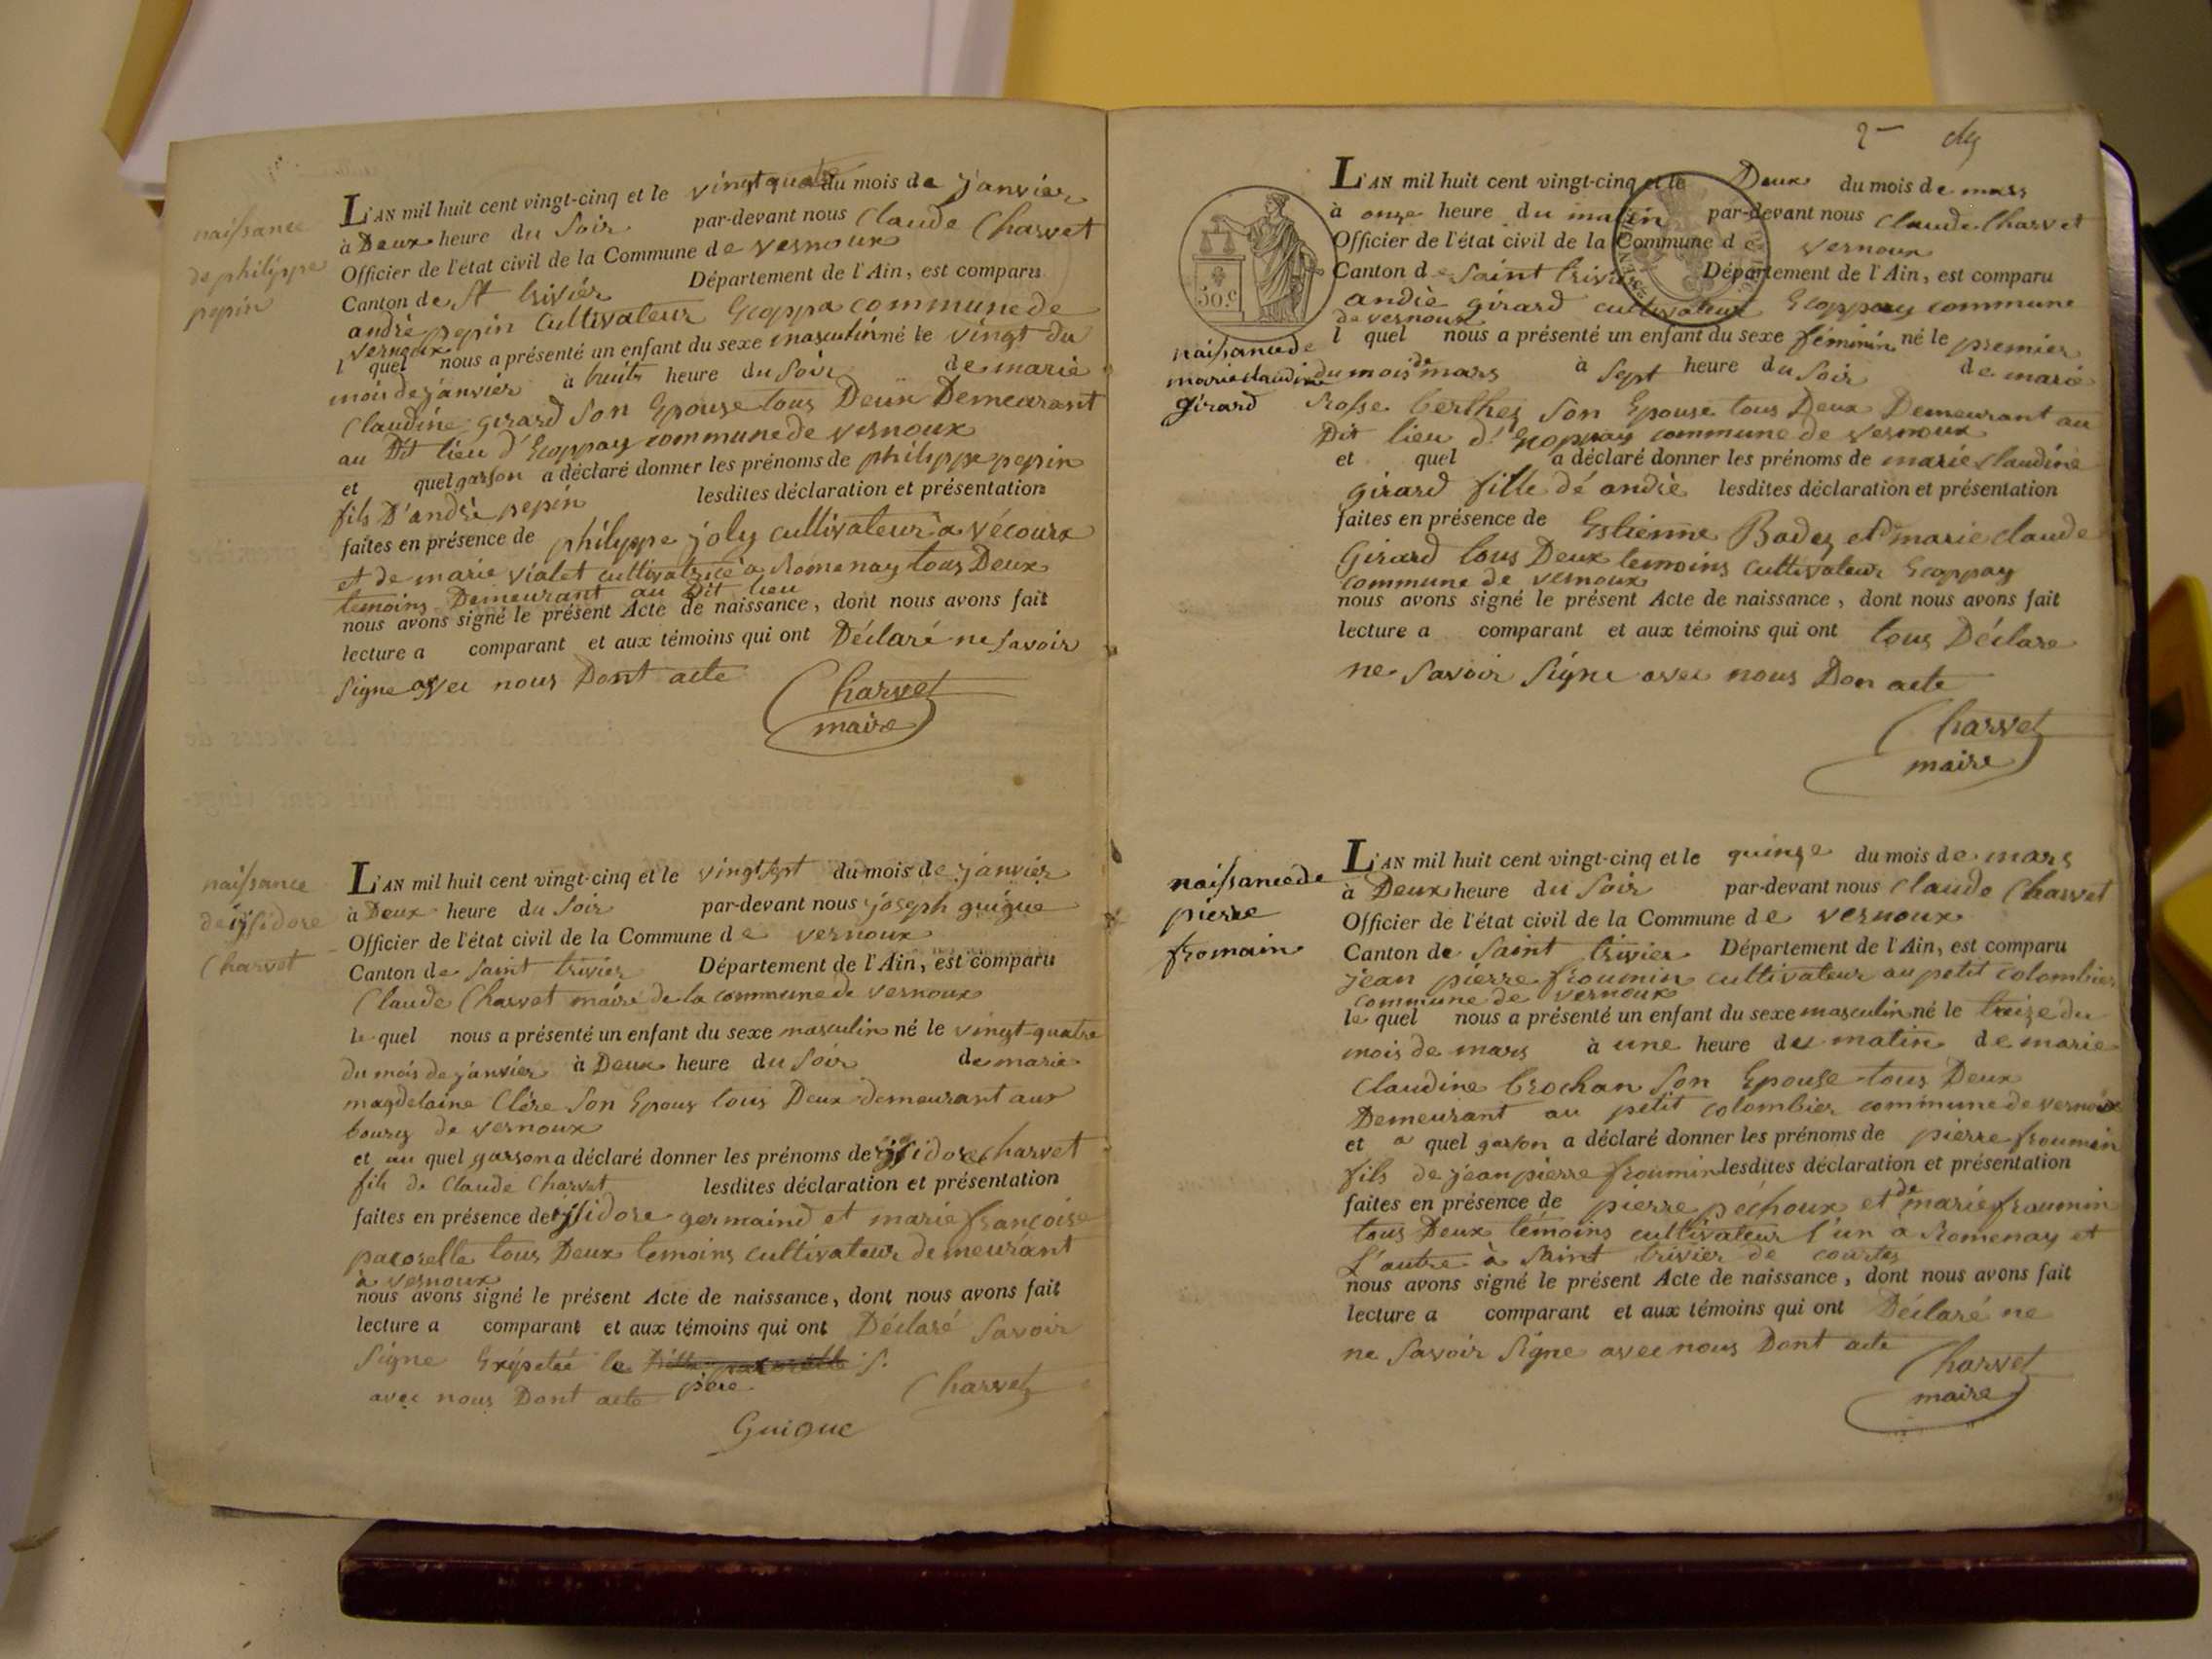 naissance
de philippe
pepin
L'AN mil huit cent vingt-cinq et le vingt quatre du mois de janvier
à Deux heure du soir par-devant nous Claude Charvet
Officier de l'état civil de la Commune de vernoux
Canton de St trivier Département de l'Ain, est comparu
andrè pepin Cultivateur Ecoppa commune de
vernoux
l quel nous a présenté un enfant du sexe masculin né le vingt du
mois de janvier à huit heure du soir de marie
Claudine girard son Epouse tous Deux Demeurant
au Dit lieu d'Ecoppay commune de vernoux
et quel garson a déclaré donner les prénoms de philippe pepin
fils D'andrè pepin lesdites déclaration et présentation
faites en présence de philippe joly cultivateur a vécoura
et de marie vialet cultivatrice a Romenay tous Deux
temoins Demeurant au Dit lieu
nous avons signé le présent Acte de naissance, dont nous avons fait
lecture a comparant et aux témoins qui ont Déclaré ne savoir
signe avec nous Dont acte
Charvet
maire
naissance
de isidore
Charvet
L'AN mil huit cent vingt-cinq et le vingt sept du mois de janvier
à Deux heure du soir par-devant nous joseph guigue
Officier de l'état civil de la Commune de vernoux
Canton de saint trivier Département de l'Ain, est comparu
Claude Charvet maire de la commune de vernoux
le quel nous a présenté un enfant du sexe masculin né le vingt-quatre
du mois de janvier à Deux heure du soir de marie
magdelaine Clére son Epous tous Deux demeurant aux
bourg de vernoux
et au quel garson a déclaré donner les prénoms de isidore Charvet
fils de Claude Charvet lesdites déclaration et présentation
faites en présence de isidore germaind et marie françoise
pacorelle tous Deux temoins cultivateur demeurant
à vernoux
nous avons signé le présent Acte de naissance, dont nous avons fait
lecture a comparant et aux témoins qui ont Déclaré savoir
signe Exépeteé le s.
avec nous Dont acte père
Charvet
Guigue
2
50.c
L'AN mil huit cent vingt-cinq et le Deux du mois de mars
à onze heure du matin par-devant nous Claude Charvet
Officier de l'état civil de la Commune de vernoux
Canton de saint trivier Département de l'Ain, est comparu
andiè girard cultivateur Ecoppay commune
de vernoux
l quel nous a présenté un enfant du sexe féminin né le premier
naissance de
marie claudine
girard
du mois de mars à sept heure du soir de marie
Rosse berthez son Epouse tous Deux Demeurant au
Dit lieu d'Ecoppay commune de vernoux
et quel a déclaré donner les prénoms de marie claudine
girard fille dé andrè lesdites déclaration et présentation
faites en présence de Estienne Badez et marie claude
Girard tous Deux temoins cultivateur Ecoppay
commune de vernoux
nous avons signé le présent Acte de naissance, dont nous avons fait
lecture a comparant et aux témoins qui ont tous Déclare
ne savoir signe avec nous Don acte
Charvet
maire
naissance de
pierre
fromain
L'AN mil huit cent vingt-cinq et le quinze du mois de mars
à Deux heure du soir par-devant nous Claude Charvet
Officier de l'état civil de la Commune de vernoux
Canton de saint trivier Département de l'Ain, est comparu
jean pierre froumin cultivateur au petit colombier
commune de vernoux
le quel nous a présenté un enfant du sexe masculin né le treize du
mois de mars à une heure du matin de marie
Claudine brochan son Epouse tous Deux
Demeurant au petit colombier commune de vernoux
et a quel garson a déclaré donner les prénoms de pierre froumin
fils de jean pierre froumin lesdites déclaration et présentation
faites en présence de pierre péchoux et de marie froumin
tous Deux témoins cultivateur l'un à Romenay et
l'autre à saint trivier de courtes
nous avons signé le présent Acte de naissance, dont nous avons fait
lecture a comparant et aux témoins qui ont Déclaré ne
ne savoir signe avec nous Dont acte
Charvet
maire